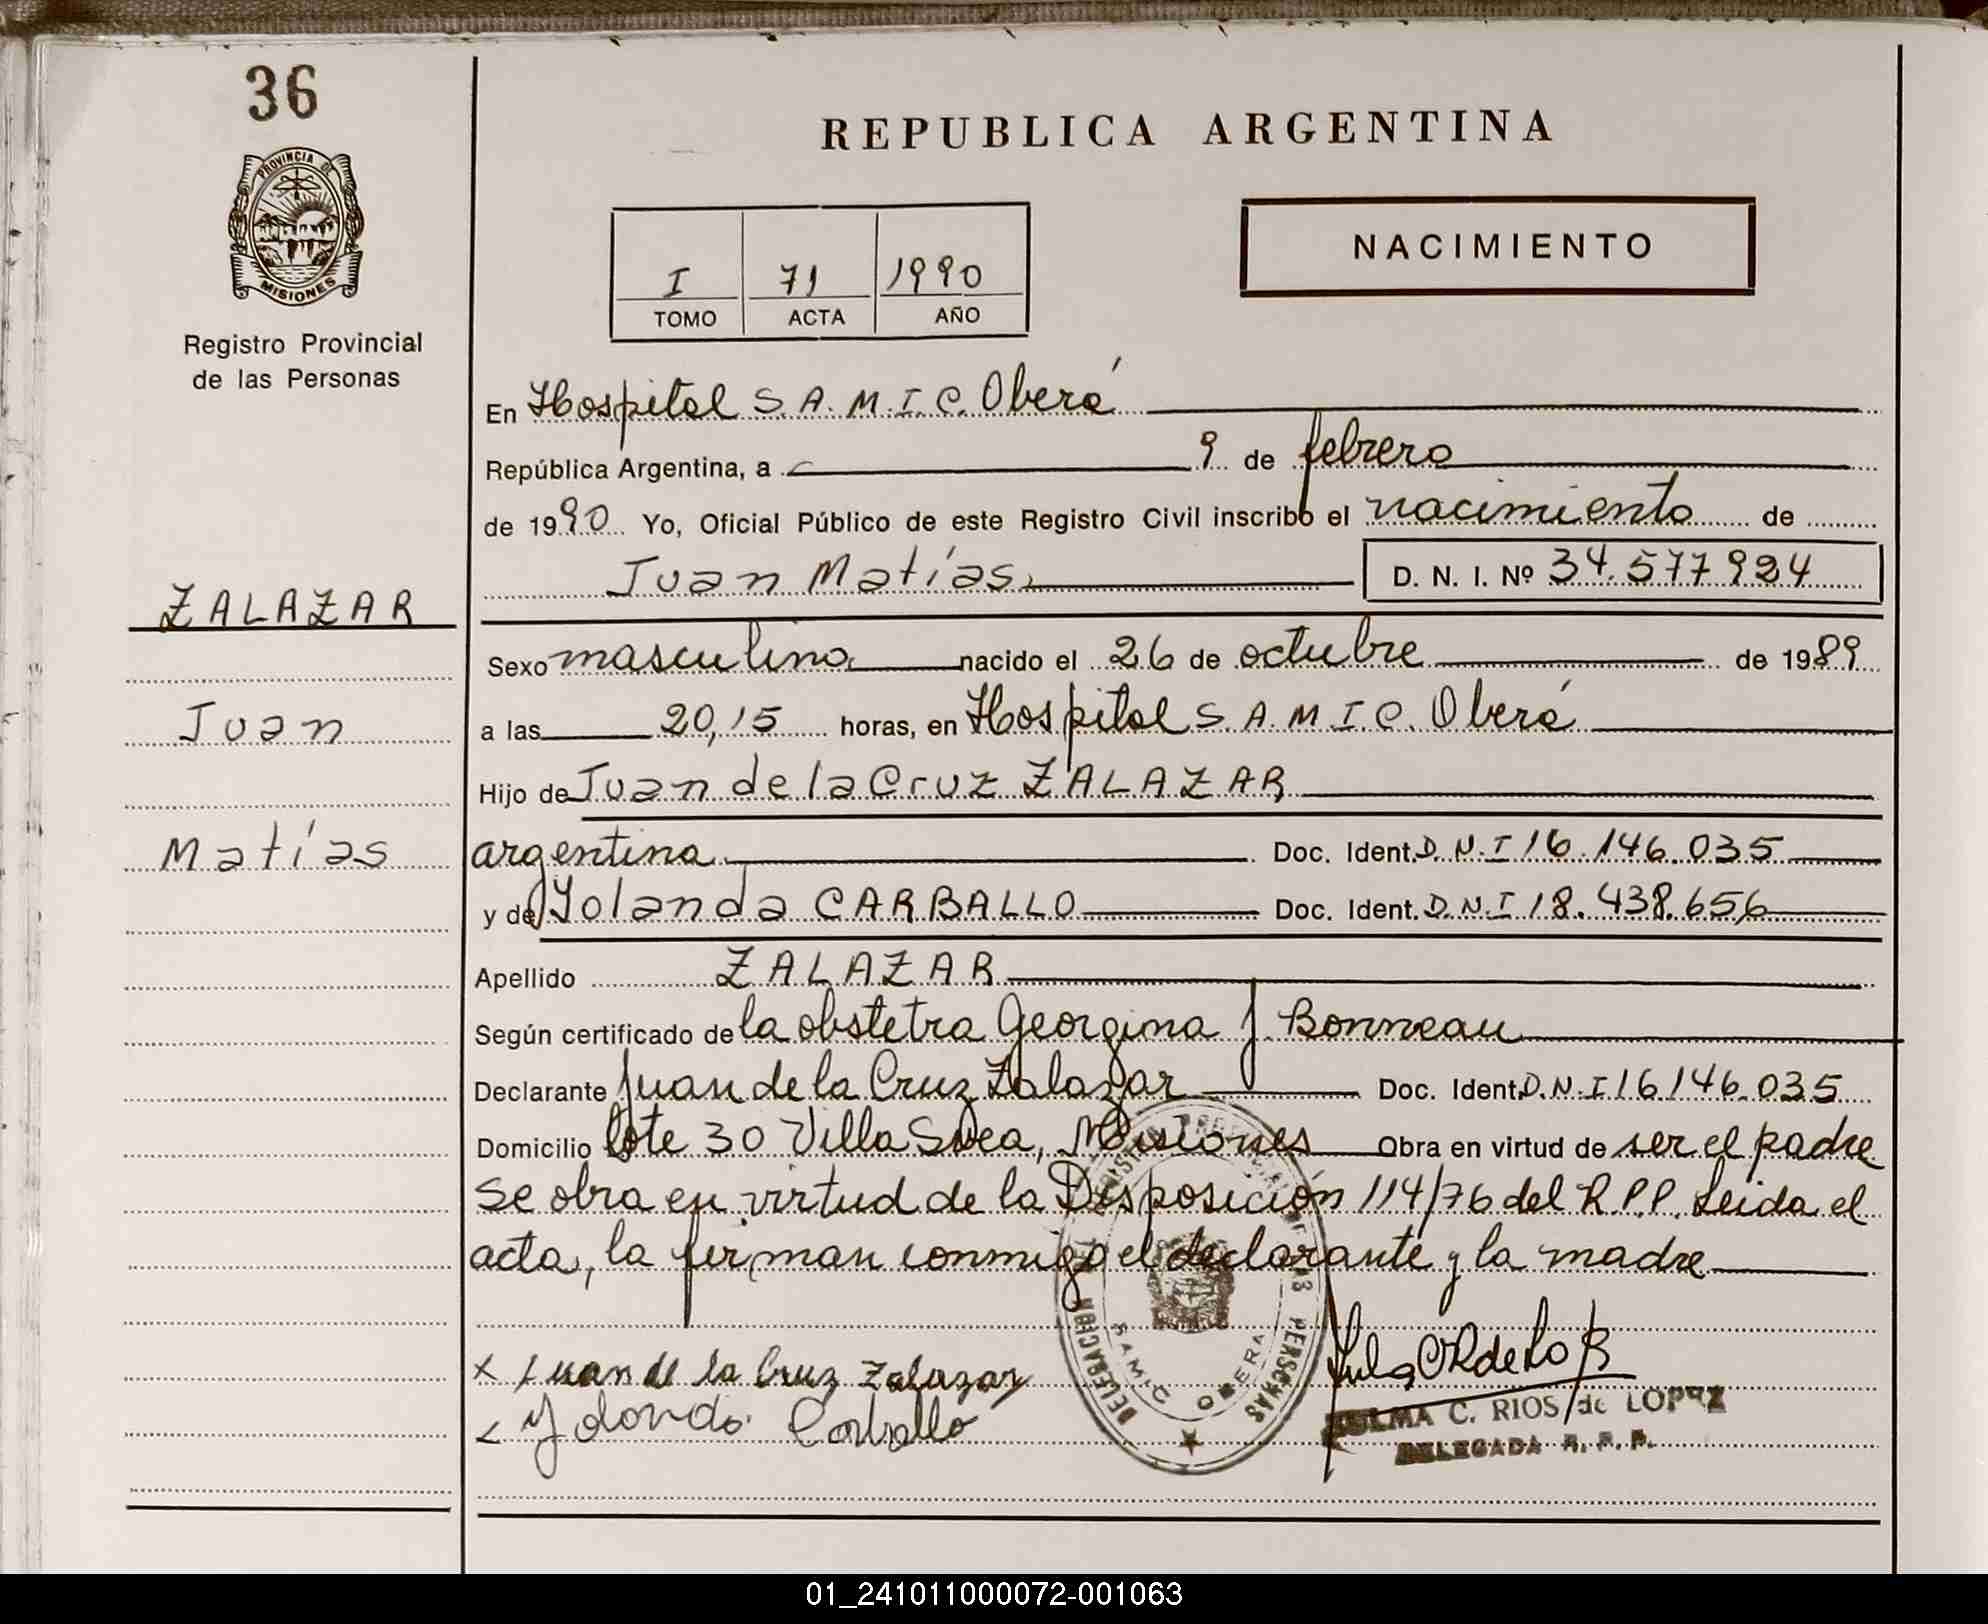 36
PROVINCIA DE
MISIONES
Registro Provincial
de las Personas
ZALAZAR
Juan
Matías
REPUBLICA ARGENTINA
I 71 1990
TOMO ACTA AÑO
NACIMIENTO
En Hospital S.A.M.I.C. Oberá
República Argentina, a 9 de febrero
de 1990 Yo, Oficial Público de este Registro Civil inscribo el nacimiento de
Juan Matías. D. N. I. Nº 34.577924
Sexo masculino nacido el 26 de octubre de 1989
a las 20,15 horas, en Hospital S.A.M.I.C. Oberá
Hijo de Juan de la Cruz ZALAZAR
argentina Doc. Ident. D.N.I 16.146.035
y de Yolanda CARBALLO Doc. Ident. D.N.I 18.438.656
Apellido ZALAZAR
Según certificado de la obstetra Georgina J. Bonneau
Declarante Juan de la Cruz Zalazar Doc. Ident. D.N.I 16146.035
Domicilio lote 30 Villa Svea, Misiones Obra en virtud de ser el padre
Se obra en virtud de la Disposición 114/76 del R.P.P. Leida el
acta, la firman conmigo el declarante y la madre
x Juan de la Cruz Zalazar
Yolanda Carballo
DELEGACION
PERSONAS
SAMIC OBERA
ZULMA C. RIOS de LOPEZ
DELEGADA R. P. P.
01_241011000072-001063